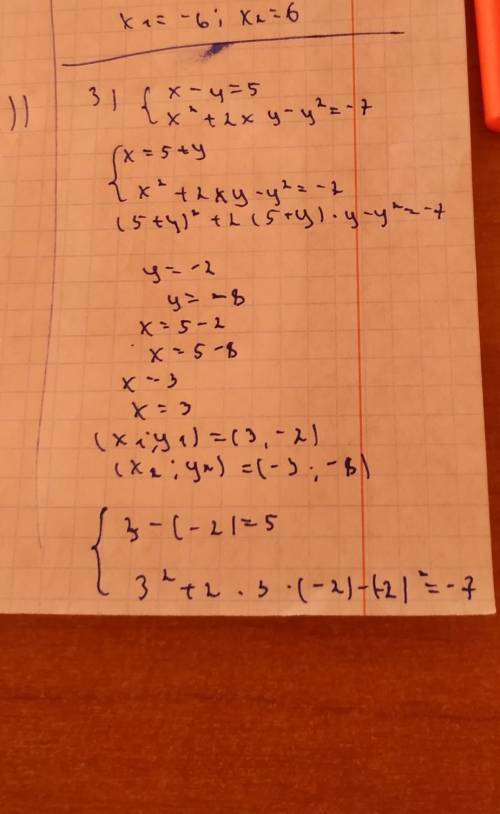 x₁ = -6; x₂ = 6
3) { x - y = 5
x² + 2xy - y² = -7
{ x = 5 + y
x² + 2xy - y² = -7
(5+y)² + 2(5+y)·y - y² = -7
y = -2
y = -8
x = 5 - 2
x = 5 - 8
x - 3
x = 3
(x₁; y₁) = (3, -2)
(x₂; y₂) = (-3; -8)
{ 3 - (-2) = 5
3² + 2·3·(-2) - (-2)² = -7